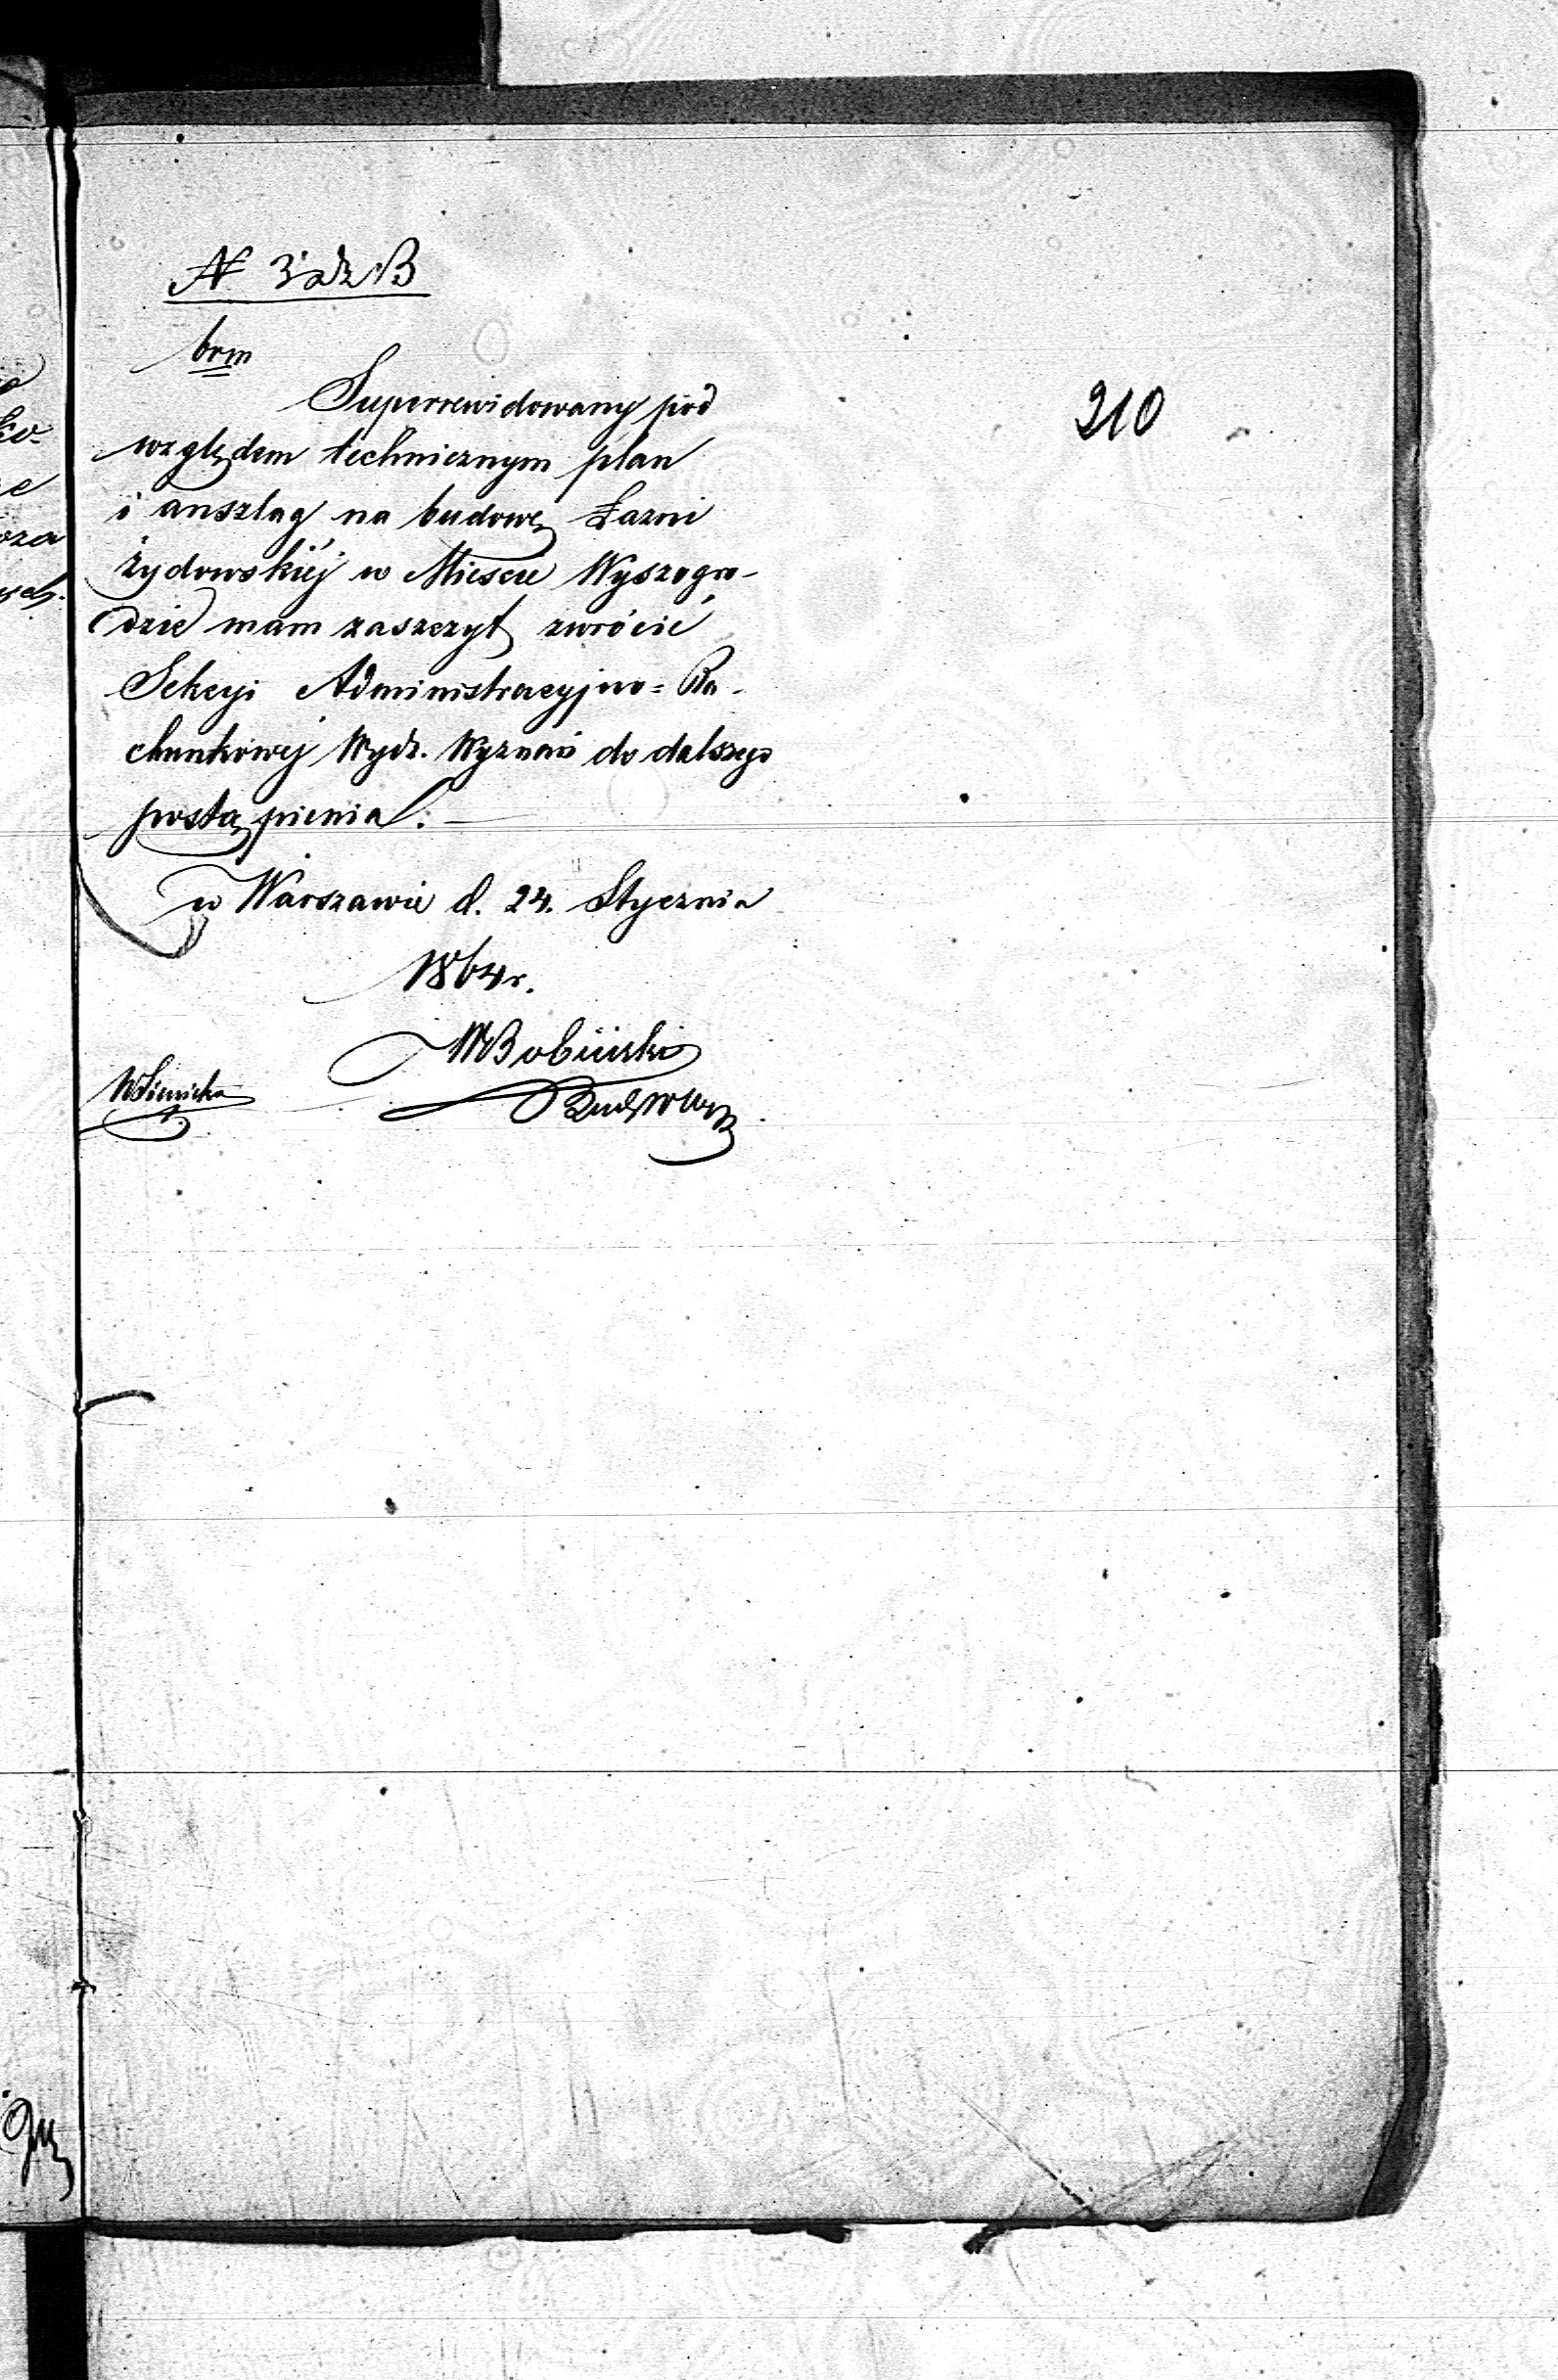 N 3 adz B
brm
210
Superrewidowany pod
względem technicznym plan
i anszlag na budowę Łazni
żydowskiéj w Miescie Wyszogro-
dzie mam zaszczyt zwrócić
Sekcyi Administracyjno=Ra-
chunkowej Wydz. Wyznań do dalszego
postąpienia.
w Warszawie d. 24. Stycznia
1864 r.
MBobiński